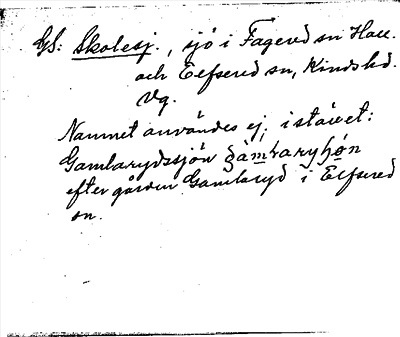 GS: Skolesj., sjö i Fagered sn Hall.
och Elfsered sn, Kinds hd.
Vg.
Namnet användes ej i stället:
Gamlarydssjön
efter gården Gamlaryd i Elfsered
sn.